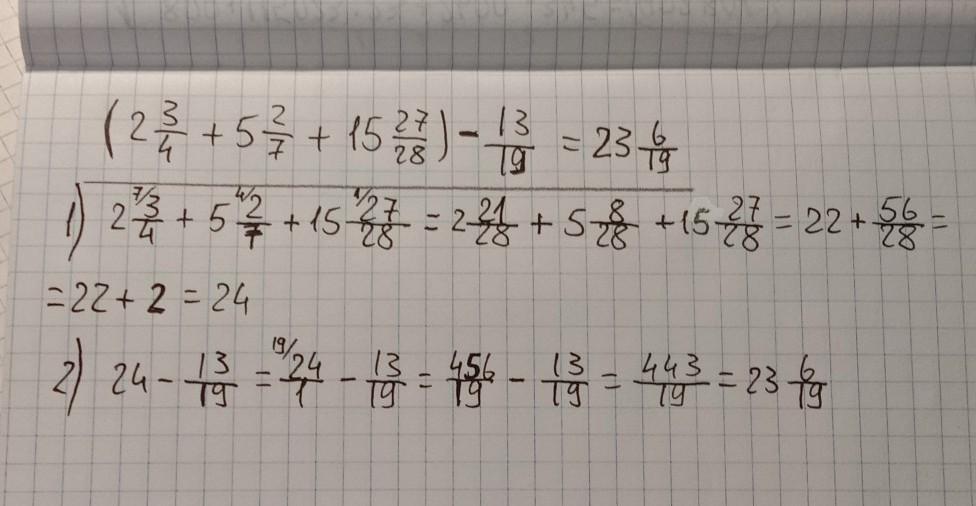 (2 3/4 + 5 2/7 + 15 27/28) - 13/19 = 23 6/19
1) 2 7/3/4 + 5 4/2/7 + 15 1/27/28 = 2 21/28 + 5 8/28 + 15 27/28 = 22 + 56/28 =
= 22 + 2 = 24
2) 24 - 13/19 = 19/24/1 - 13/19 = 456/19 - 13/19 = 443/19 = 23 6/19